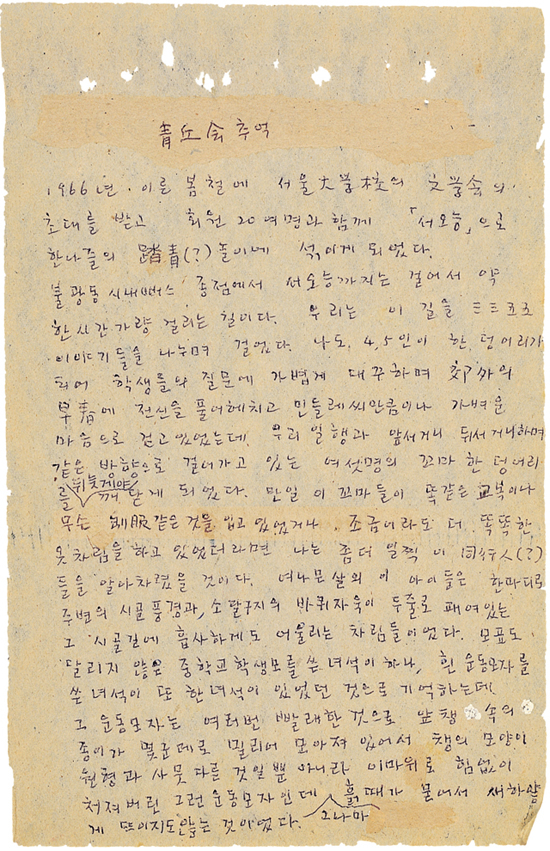 靑丘会 추억
1966년. 이른 봄철에 서울大學校의 文學会의
초대를 받고 회원 20여명과 함께 「서오능」으로
한나절의 踏靑(?)놀이에 섞이게 되었다.
불광동 시내뻐스 종점에서 서오능까지는 걸어서 약
한시간가량 걸리는 길이다. 우리는 이 길을 三三五五
이야기들을 나누며 걸었다. 나도 4,5인이 한 덩어리가
되어 학생들의 질문에 가볍게 대꾸하며 郊外의
早春에 전신을 풀어헤치고 민들레씨만큼이나 가벼운
마음으로 걷고 있었는데, 우리 일행과 앞서거니 뒤서거니하며
같은 방향으로 걸어가고 있는 여섯명의 꼬마 한 덩어리
를 뒤늦게야 깨닫게 되었다. 만일 이 꼬마들이 똑같은 교복이나
무슨 制服같은 것을 입고 있었거나, 조금이라도 더 똑똑한
옷차림을 하고 있었더라면 나는 좀더 일찍 이 同行人(?)
들을 알아차렸을 것이다. 여나믄살의 이 아이들은 한마디로
주변의 시골풍경과, 소달구지의 바퀴자욱이 두줄로 패여있는
그 시골길에 흡사하게도 어울리는 차림들이었다. 모표도
달리지 않은 중학교학생모를 쓴 녀석이 하나, 흰 운동모자를
쓴 녀석이 또 한녀석이 있었던 것으로 기억하는데,
그 운동모자는 여러번 빨래한 것으로 앞챙 속의
종이가 몇군데로 밀리어 모아져 있어서 챙의 모양이
원형과 사뭇 다른 것일 뿐 아니라 이마위로 힘없이
처져버린 그런 운동모자인데 흙때가 묻어서 새하얗
게 뜨이지도 않는 것이었다. 그나마